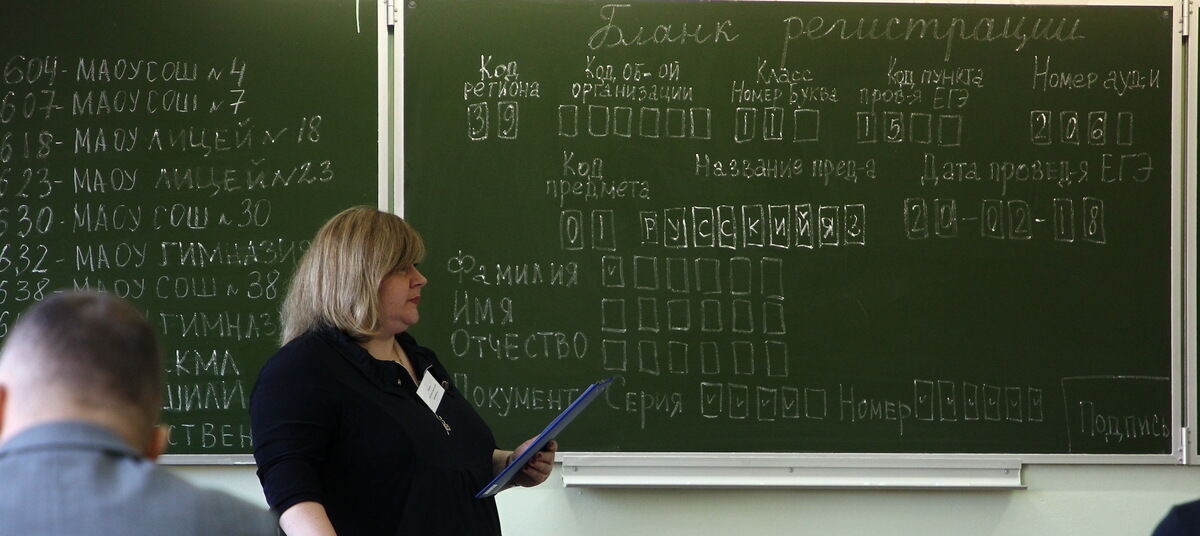 604- МАОУ СОШ №4
607- МАОУ СОШ №7
618- МАОУ ЛИЦЕЙ №18
623- МАОУ ЛИЦЕЙ №23
630- МАОУ СОШ №30
632- МАОУ ГИМНАЗИЯ
638- МАОУ СОШ №38
ГИМНАЗ
КМЛ
ШИЛИ
СТВЕН
Бланк регистрации
Код региона
39
Код об-ой организации
Класс
Номер Буква
11
Код пункта пров-я ЕГЭ
15
Номер ауд-и
206
Код предмета
01
Название пред-а
РУССКИЙЯЗ
Дата провед-я ЕГЭ
20-02-18
Фамилия
Имя
Отчество
Документ Серия Номер
Подпись